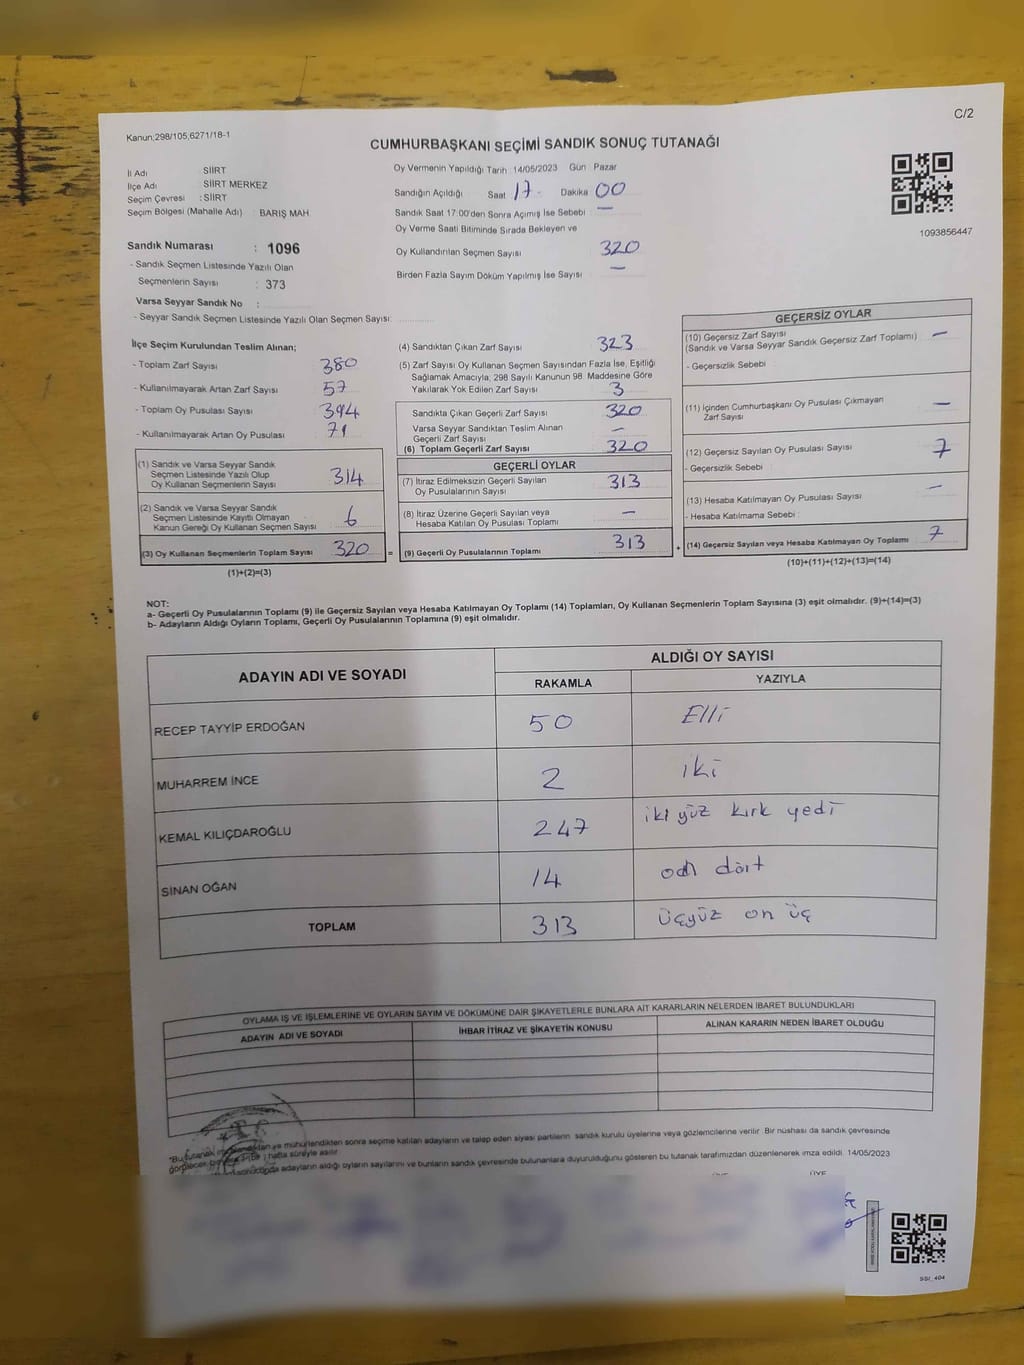 C/2
Kanun;298/105,6271/18-1
CUMHURBAŞKANI SEÇİMİ SANDIK SONUÇ TUTANAĞI
İl Adı SİİRT
İlçe Adı SİİRT MERKEZ
Seçim Çevresi : SİİRT
Seçim Bölgesi (Mahalle Adı) : BARIŞ MAH.
Oy Vermenin Yapıldığı Tarih 14/05/2023 Gün Pazar
Sandığın Açıldığı Saat 17- Dakika 00
Sandık Saat 17:00'den Sonra Açımış İse Sebebi —
Oy Verme Saati Bitiminde Sırada Bekleyen ve
Oy Kullandırılan Seçmen Sayısı 320
Birden Fazla Sayım Döküm Yapılmış İse Sayısı —
1093856447
Sandık Numarası : 1096
- Sandık Seçmen Listesinde Yazılı Olan
Seçmenlerin Sayısı : 373
Varsa Seyyar Sandık No :
- Seyyar Sandık Seçmen Listesinde Yazılı Olan Seçmen Sayısı:
İlçe Seçim Kurulundan Teslim Alınan;
- Toplam Zarf Sayısı 380
- Kullanılmayarak Artan Zarf Sayısı 57
- Toplam Oy Pusulası Sayısı 394
- Kullanılmayarak Artan Oy Pusulası 71
(1) Sandık ve Varsa Seyyar Sandık
Seçmen Listesinde Yazılı Olup
Oy Kullanan Seçmenlerin Sayısı 314
(2) Sandık ve Varsa Seyyar Sandık
Seçmen Listesinde Kayıtlı Olmayan
Kanun Gereği Oy Kullanan Seçmen Sayısı 6
(3) Oy Kullanan Seçmenlerin Toplam Sayısı 320 =
(1)+(2)=(3)
(4) Sandıktan Çıkan Zarf Sayısı 323
(5) Zarf Sayısı Oy Kullanan Seçmen Sayısından Fazla İse, Eşitliği
Sağlamak Amacıyla, 298 Sayılı Kanunun 98. Maddesine Göre
Yakılarak Yok Edilen Zarf Sayısı 3
Sandıkta Çıkan Geçerli Zarf Sayısı 320
Varsa Seyyar Sandıktan Teslim Alınan
Geçerli Zarf Sayısı —
(6) Toplam Geçerli Zarf Sayısı 320
GEÇERLİ OYLAR
(7) İtiraz Edilmeksizin Geçerli Sayılan
Oy Pusulalarının Sayısı 313
(8) İtiraz Üzerine Geçerli Sayılan veya
Hesaba Katılan Oy Pusulası Toplamı —
(9) Geçerli Oy Pusulalarının Toplamı 313 +
GEÇERSİZ OYLAR
(10) Geçersiz Zarf Sayısı
(Sandık ve Varsa Seyyar Sandık Geçersiz Zarf Toplamı) —
- Geçersizlik Sebebi
(11) İçinden Cumhurbaşkanı Oy Pusulası Çıkmayan
Zarf Sayısı —
(12) Geçersiz Sayılan Oy Pusulası Sayısı 7
- Geçersizlik Sebebi
(13) Hesaba Katılmayan Oy Pusulası Sayısı —
- Hesaba Katılmama Sebebi :
(14) Geçersiz Sayılan veya Hesaba Katılmayan Oy Toplamı 7
(10)+(11)+(12)+(13)=(14)
NOT:
a- Geçerli Oy Pusulalarının Toplamı (9) ile Geçersiz Sayılan veya Hesaba Katılmayan Oy Toplamı (14) Toplamları, Oy Kullanan Seçmenlerin Toplam Sayısına (3) eşit olmalıdır. (9)+(14)=(3)
b- Adayların Aldığı Oyların Toplamı, Geçerli Oy Pusulalarının Toplamına (9) eşit olmalıdır.
ADAYIN ADI VE SOYADI ALDIĞI OY SAYISI
RAKAMLA YAZIYLA
RECEP TAYYİP ERDOĞAN 50 Elli
MUHARREM İNCE 2 iki
KEMAL KILIÇDAROĞLU 247 iki yüz kırk yedi
SİNAN OĞAN 14 on dört
TOPLAM 313 üçyüz on üç
OYLAMA İŞ VE İŞLEMLERİNE VE OYLARIN SAYIM VE DÖKÜMÜNE DAİR ŞİKAYETLERLE BUNLARA AİT KARARLARIN NELERDEN İBARET BULUNDUKLARI
ADAYIN ADI VE SOYADI İHBAR İTİRAZ VE ŞİKAYETİN KONUSU ALINAN KARARIN NEDEN İBARET OLDUĞU
"Bu tutanak ve mühürlendikten sonra seçime katılan adayların ve talep eden siyasi partilerin sandık kurulu üyelerine veya gözlemcilerine verilir. Bir nüshası da sandık çevresinde
hafta süreyle asılır.
adayların aldığı oyların sayılarını ve bunların sandık çevresinde bulunanlara duyurulduğunu gösteren bu tutanak tarafımızdan düzenlenerek imza edildi. 14/05/2023
ÜYE
SSI_404